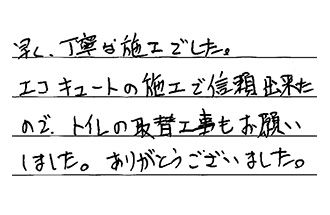 早く、丁寧な施工でした。
エコキュートの施工で信頼出来た
ので、トイレの取替工事もお願い
しました。ありがとうございました。